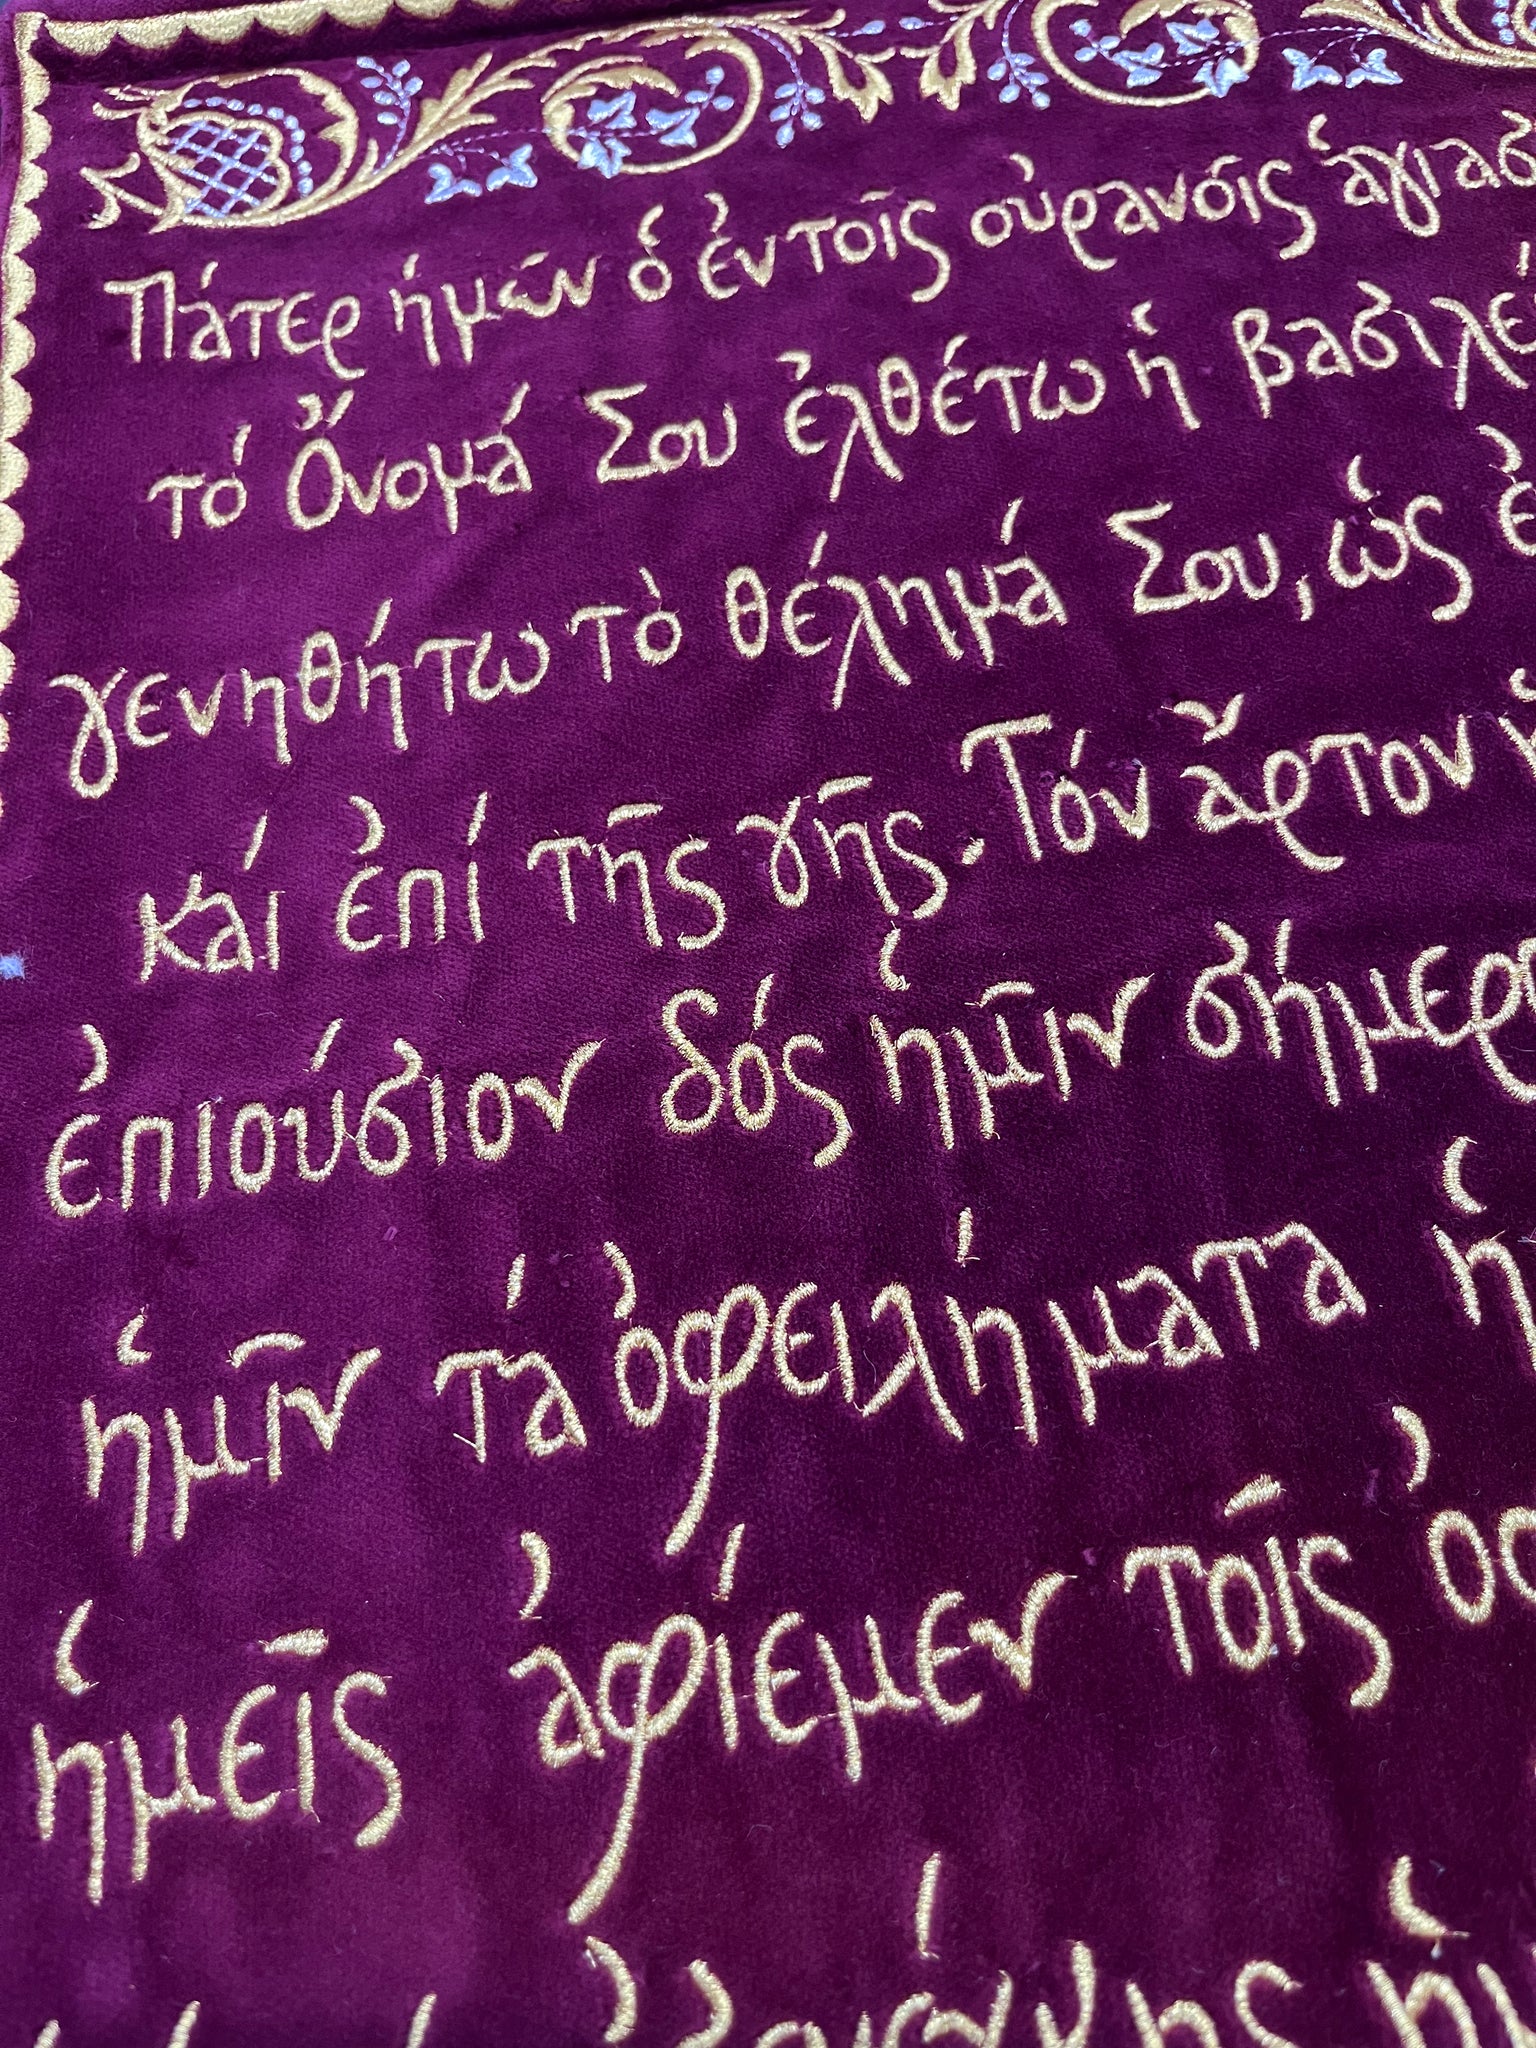 Πάτερ ἡμῶν ὁ ἐν τοῖς οὐρανοῖς ἁγιασ
τό Ὄνομά Σου ἐλθέτω ἡ βασιλε
γενηθήτω τὸ θέλημά Σου, ὡς ἐ
καί ἐπί τῆς γῆς. Τόν ἄρτον
ἐπιούσιον δός ἡμῖν σήμερ
ἡμῖν τά ὀφειλήματα ἡ
ἡμεῖς ἀφίεμεν τοῖς ὀφ